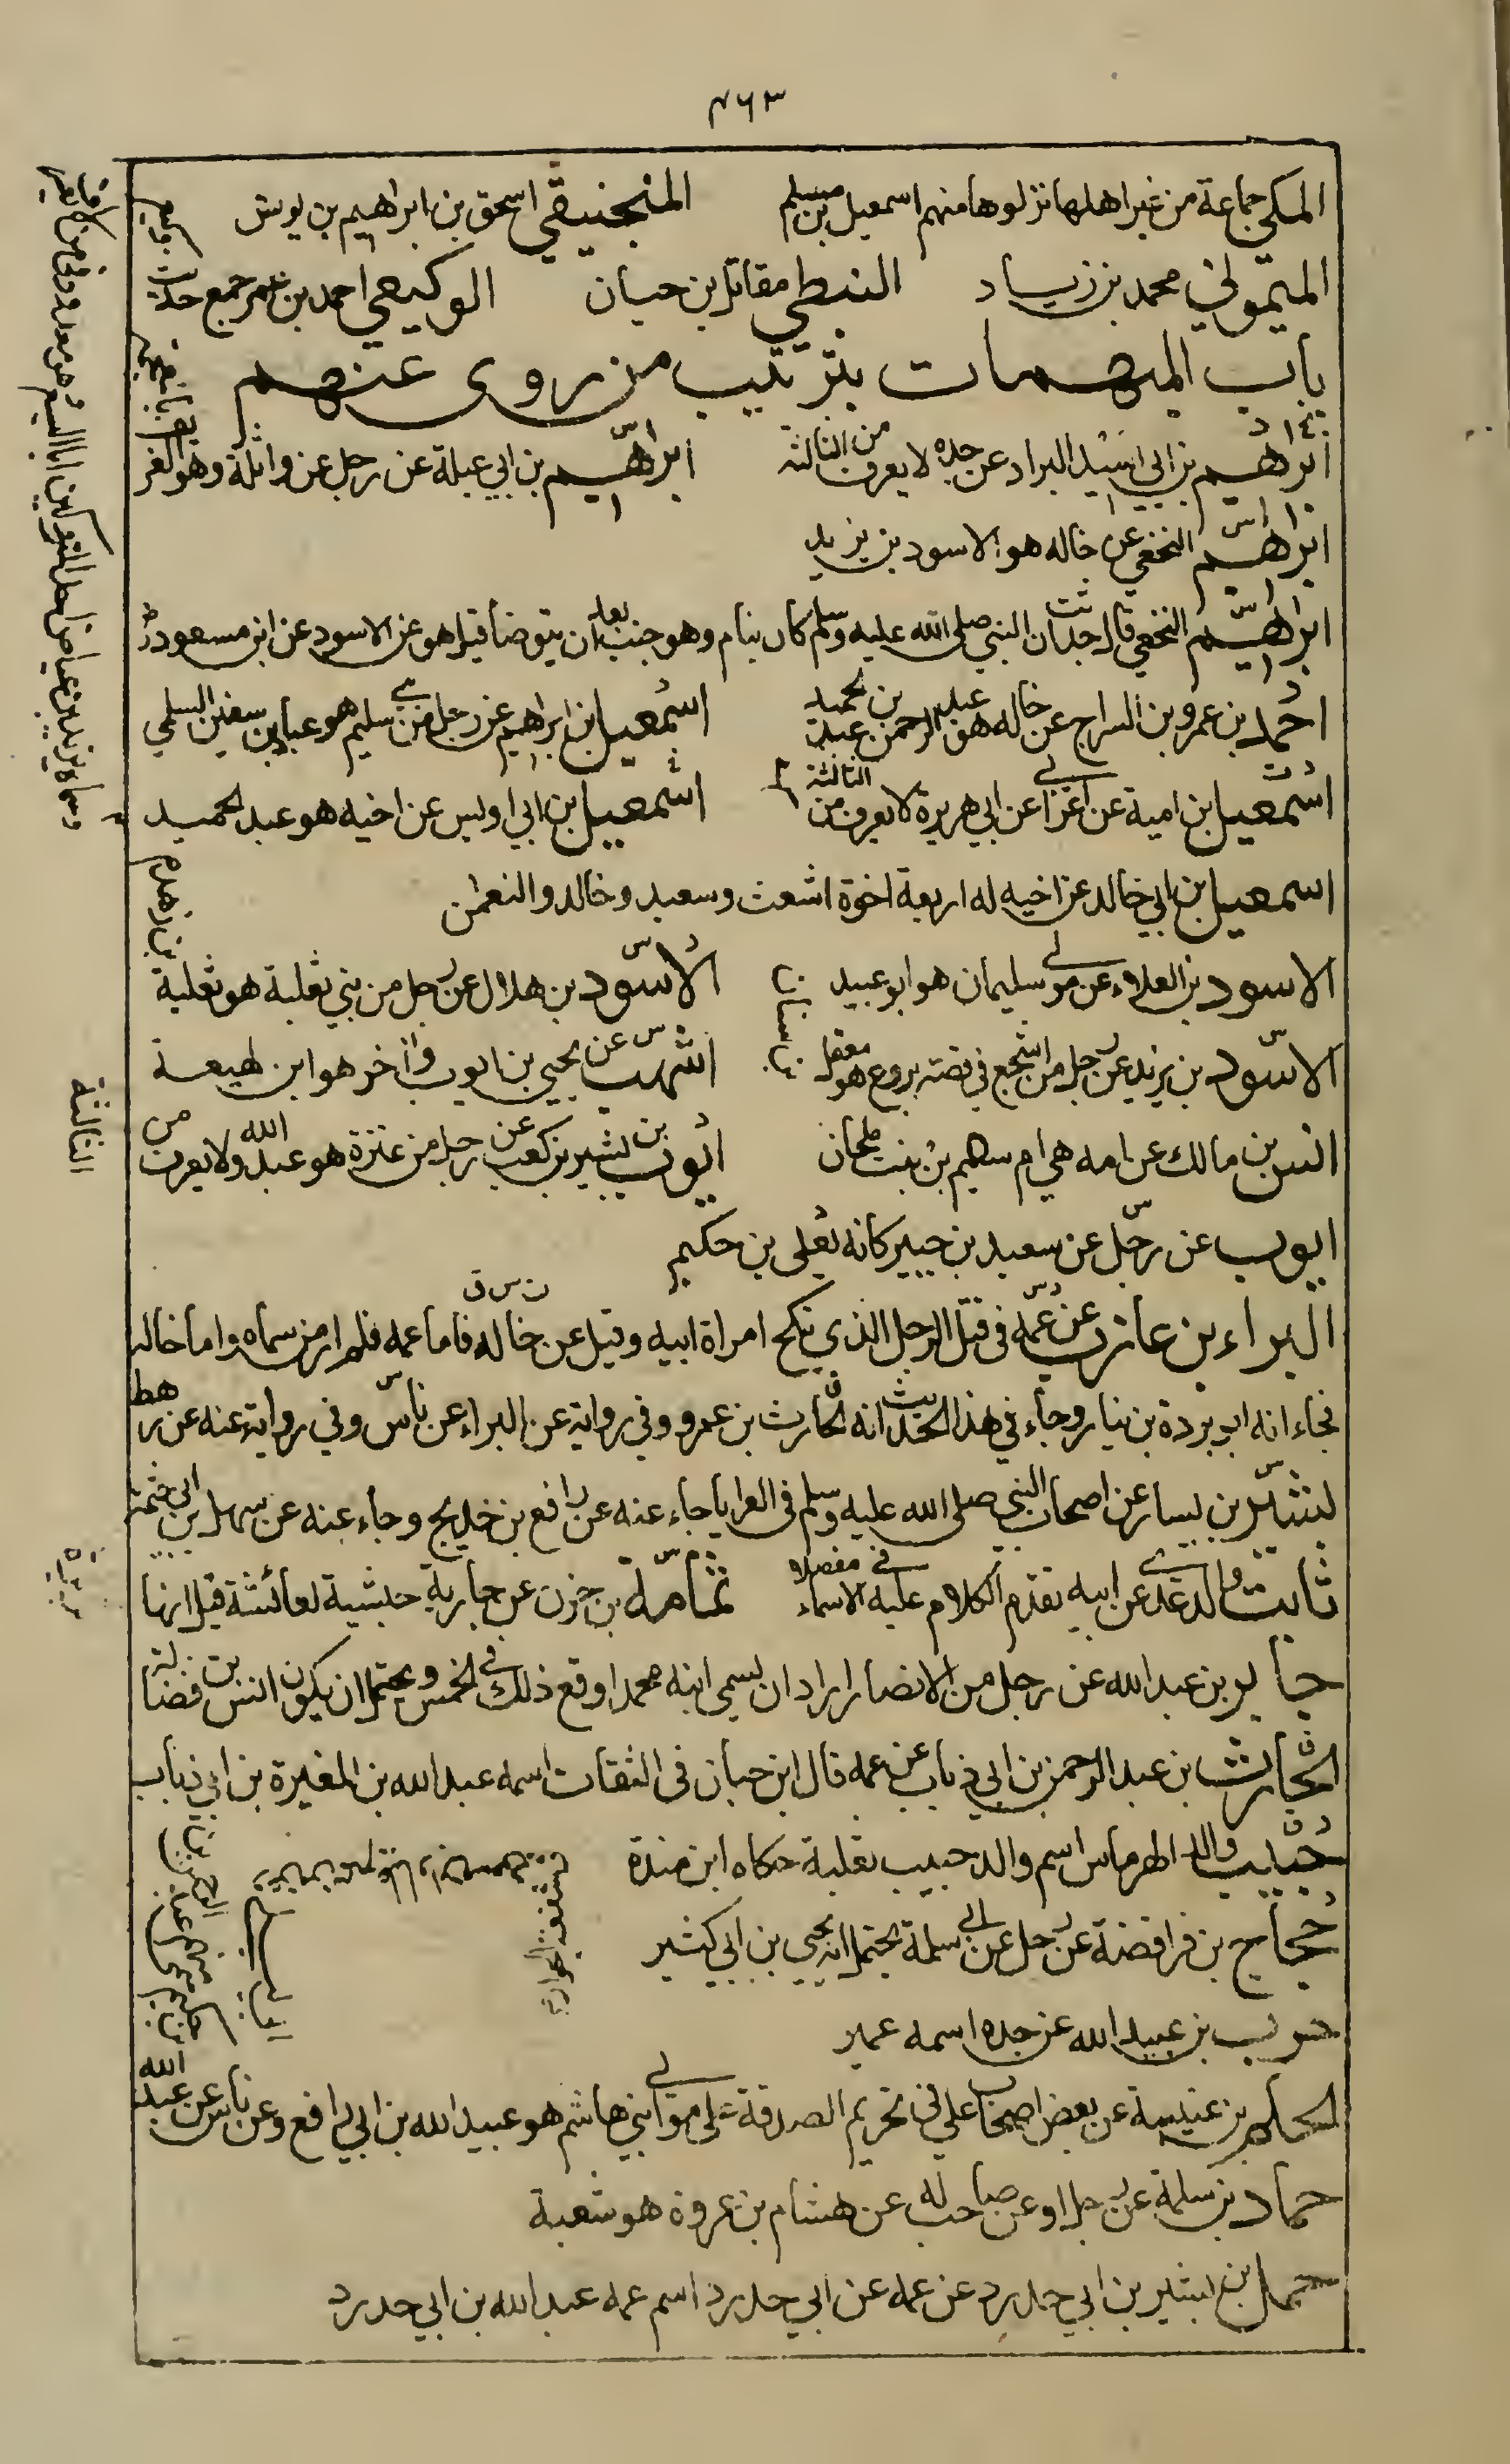 ۴۶۳
المكي جماعة من غير اهلها نزلوها منهم اسمعيل بن مسلم المنجنيقي اسحق بن ابراهيم بن يونس
الميموني محمد بن زياد النبطي مقاتل بن حيان الوكيعي احمد بن عمر جمع حديث وكيع
باب المبهمات بترتيب من روى عنهم
ابراهيم بن ابي اسيد البراد عن جده لا يعرف من الثالثة ابراهيم بن ابي عبلة عن رجل عن واثلة وهو الغر
ابراهيم النخعي عن خاله هو الاسود بن يزيد
ابراهيم النخعي قال حدثت ان النبي صلى الله عليه وسلم كان ينام وهو جنب بعد ان يتوضأ قيل هو عن الاسود عن ابن مسعود
احمد بن عمرو بن السراج عن خاله هو عبد الرحمن بن عبد الحميد اسمعيل بن ابراهيم عن رجل من بني سليم هو عباد بن سفين السلمي
اسمعيل بن امية عن اعرابي عن ابي هريرة لا يعرف من الثالثة اسمعيل بن ابي اويس عن اخيه هو عبد الحميد
اسمعيل بن ابي خالد عن اخيه له اربعة اخوة اشعث وسعيد وخالد والنعمن
الاسود بن العلاء عن مولى سليمان هو ابو عبيد الاسود بن هلال عن رجل من بني ثعلبة هو ثعلبة بن زهدم
الاسود بن يزيد عن رجل من اشجع في قصة بروع هو معقل بن سنان اشهب عن يحيى بن ايوب واخر هو ابن لهيعة
انس بن مالك عن امه هي ام سليم بنت ملحان ايوب بن بشير بن كعب عن رجل من عنزة هو عبد الله ولا يعرف من
الثالثة
ايوب عن رجل عن سعيد بن جبير كانه يعلى بن حكيم
البراء بن عازب عن عمه في قتل الرجل الذي نكح امراة ابيه وقيل عن خاله فاما عمه فلم ار من سماه واما خاله
فجاء انه ابو بردة بن نيار وجاء في هذا الحديث انه الحارث بن عمرو وفي رواية عن البراء عن ناس وفي رواية عنه عن رهط
بشير بن يسار عن اصحاب النبي صلى الله عليه وسلم في العرايا جاء عنه عن رافع بن خديج وجاء عنه عن سهل بن ابي حثمة
ثابت والد عدي عن ابيه تقدم الكلام عليه في الاسماء مفصلا ثمامة بن حزن عن جارية حبشية لعائشة قيل انها
بريرة
جابر بن عبد الله عن رجل من الانصار اراد ان يسمي ابنه محمدا وقع ذلك في الخمس ويحتمل ان يكون انس بن فضالة
الحارث بن عبد الرحمن بن ابي ذباب عن عمه قال ابن حبان في الثقات اسمه عبد الله بن المغيرة بن ابي ذباب
حبيب والد الهرماس اسم والد حبيب ثعلبة حكاه ابن مندة
حجاج بن فرافصة عن رجل عن ابي سلمة يحتمل انه يحيى بن ابي كثير
حرب بن عبيد الله عن جده اسمه عمير
الحكم بن عتيبة عن بعض اصحاب علي في تحريم الصدقة على موالي بني هاشم هو عبيد الله بن ابي رافع وعن ناس عن عبد الله
حماد بن سلمة عن رجل او عن صاحب له عن هشام بن عروة هو شعبة
حمل بن بشير بن ابي حدرد عن عمه عن ابي حدرد اسم عمه عبد الله بن ابي حدرد